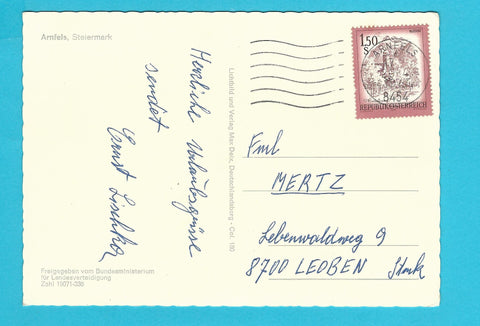 Arnfels, Steiermark
Herzliche Urlaubsgrüsse
sendet
Ernst Lischka
Freigegeben vom Bundesministerium
für Landesverteidigung
Lichtbild und Verlag Max Deix, Deutschlandsberg - Col. 180
1.50
S
REPUBLIK ÖSTERREICH
ARNFELS
8454
Fml
MERTZ
Lebenwaldweg 9
8700 LEOBEN Stmk